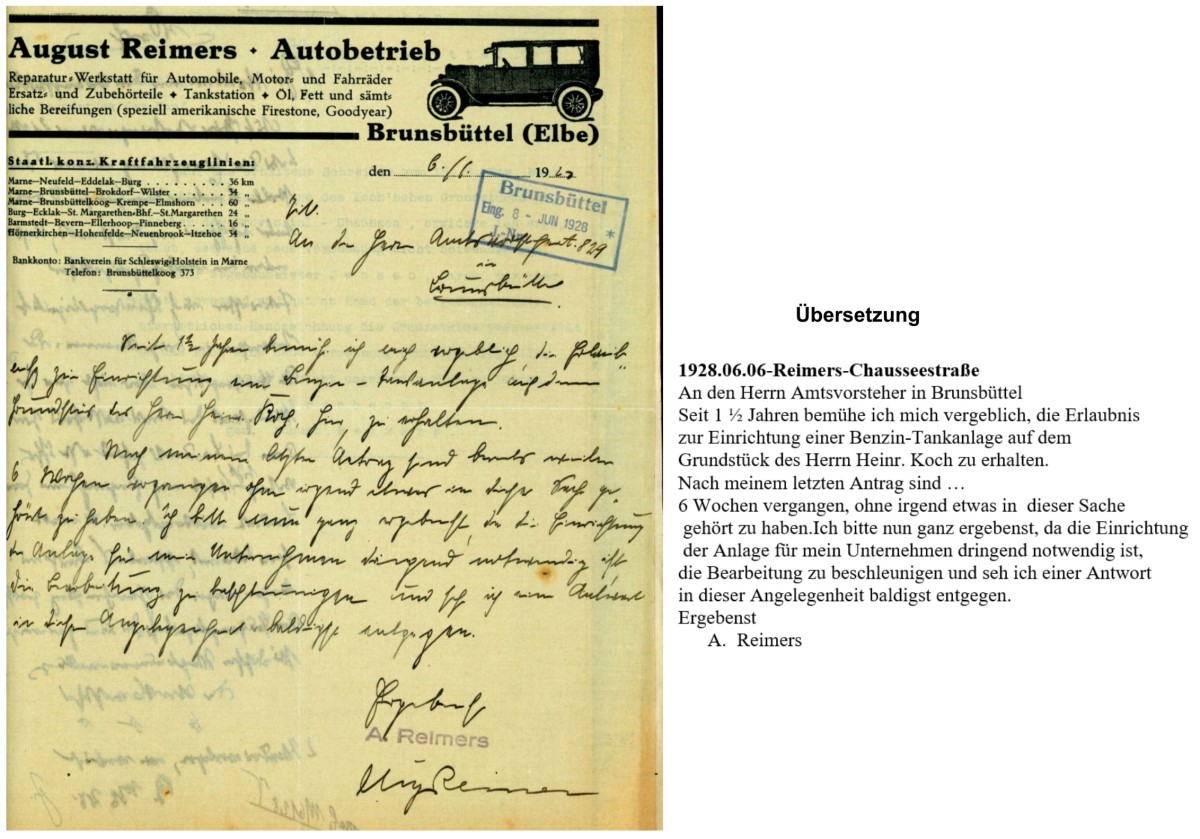 August Reimers · Autobetrieb
Reparatur-Werkstatt für Automobile, Motor- und Fahrräder
Ersatz- und Zubehörteile + Tankstation + Öl, Fett und sämt-
liche Bereifungen (speziell amerikanische Firestone, Goodyear)
Brunsbüttel (Elbe)
Staatl. konz. Kraftfahrzeuglinien:
Marne—Neufeld—Eddelak—Burg . . . . . . . . 36 km
Marne—Brunsbüttel—Brokdorf—Wilster . . . . . 34 „
Marne—Brunsbüttelkoog—Krempe—Elmshorn . . . 60 „
Burg—Ecklak—St. Margarethen-Bhf.—St.Margarethen 24 „
Barmstedt—Bevern—Ellerhoop—Pinneberg . . . . 16 „
Hörnerkirchen—Hohenfelde—Neuenbrook—Itzehoe 34 „
Bankkonto: Bankverein für Schleswig-Holstein in Marne
Telefon: Brunsbüttelkoog 373
den 6./6. 19
Brunsbüttel
Eing. 8 - JUN 1928 *
J.-Nr. 829
An den Herrn Amtsvorsteher
in
Brunsbüttel
Seit 1½ Jahren bemüh. ich mich vergeblich die Erlaub-
niß zur Einrichtung einer Benzin-Tankanlage auf dem
Grundstück des Herrn Heinr. Koch, hier, zu erhalten.
Nach meinem letzten Antrag sind bereits wieder
6 Wochen vergangen ohne irgend etwas in dieser Sache ge-
hört zu haben. Ich bitte nun ganz ergebenst, da die Einrichtung
der Anlage für mein Unternehmen dringend notwendig ist
die Bearbeitung zu beschleunigen und seh ich einer Antwort
in dieser Angelegenheit baldigst entgegen.
Ergebenst
A. Reimers
Aug Reimers
Übersetzung
1928.06.06-Reimers-Chausseestraße
An den Herrn Amtsvorsteher in Brunsbüttel
Seit 1 ½ Jahren bemühe ich mich vergeblich, die Erlaubnis
zur Einrichtung einer Benzin-Tankanlage auf dem
Grundstück des Herrn Heinr. Koch zu erhalten.
Nach meinem letzten Antrag sind …
6 Wochen vergangen, ohne irgend etwas in dieser Sache
gehört zu haben.Ich bitte nun ganz ergebenst, da die Einrichtung
der Anlage für mein Unternehmen dringend notwendig ist,
die Bearbeitung zu beschleunigen und seh ich einer Antwort
in dieser Angelegenheit baldigst entgegen.
Ergebenst
A. Reimers